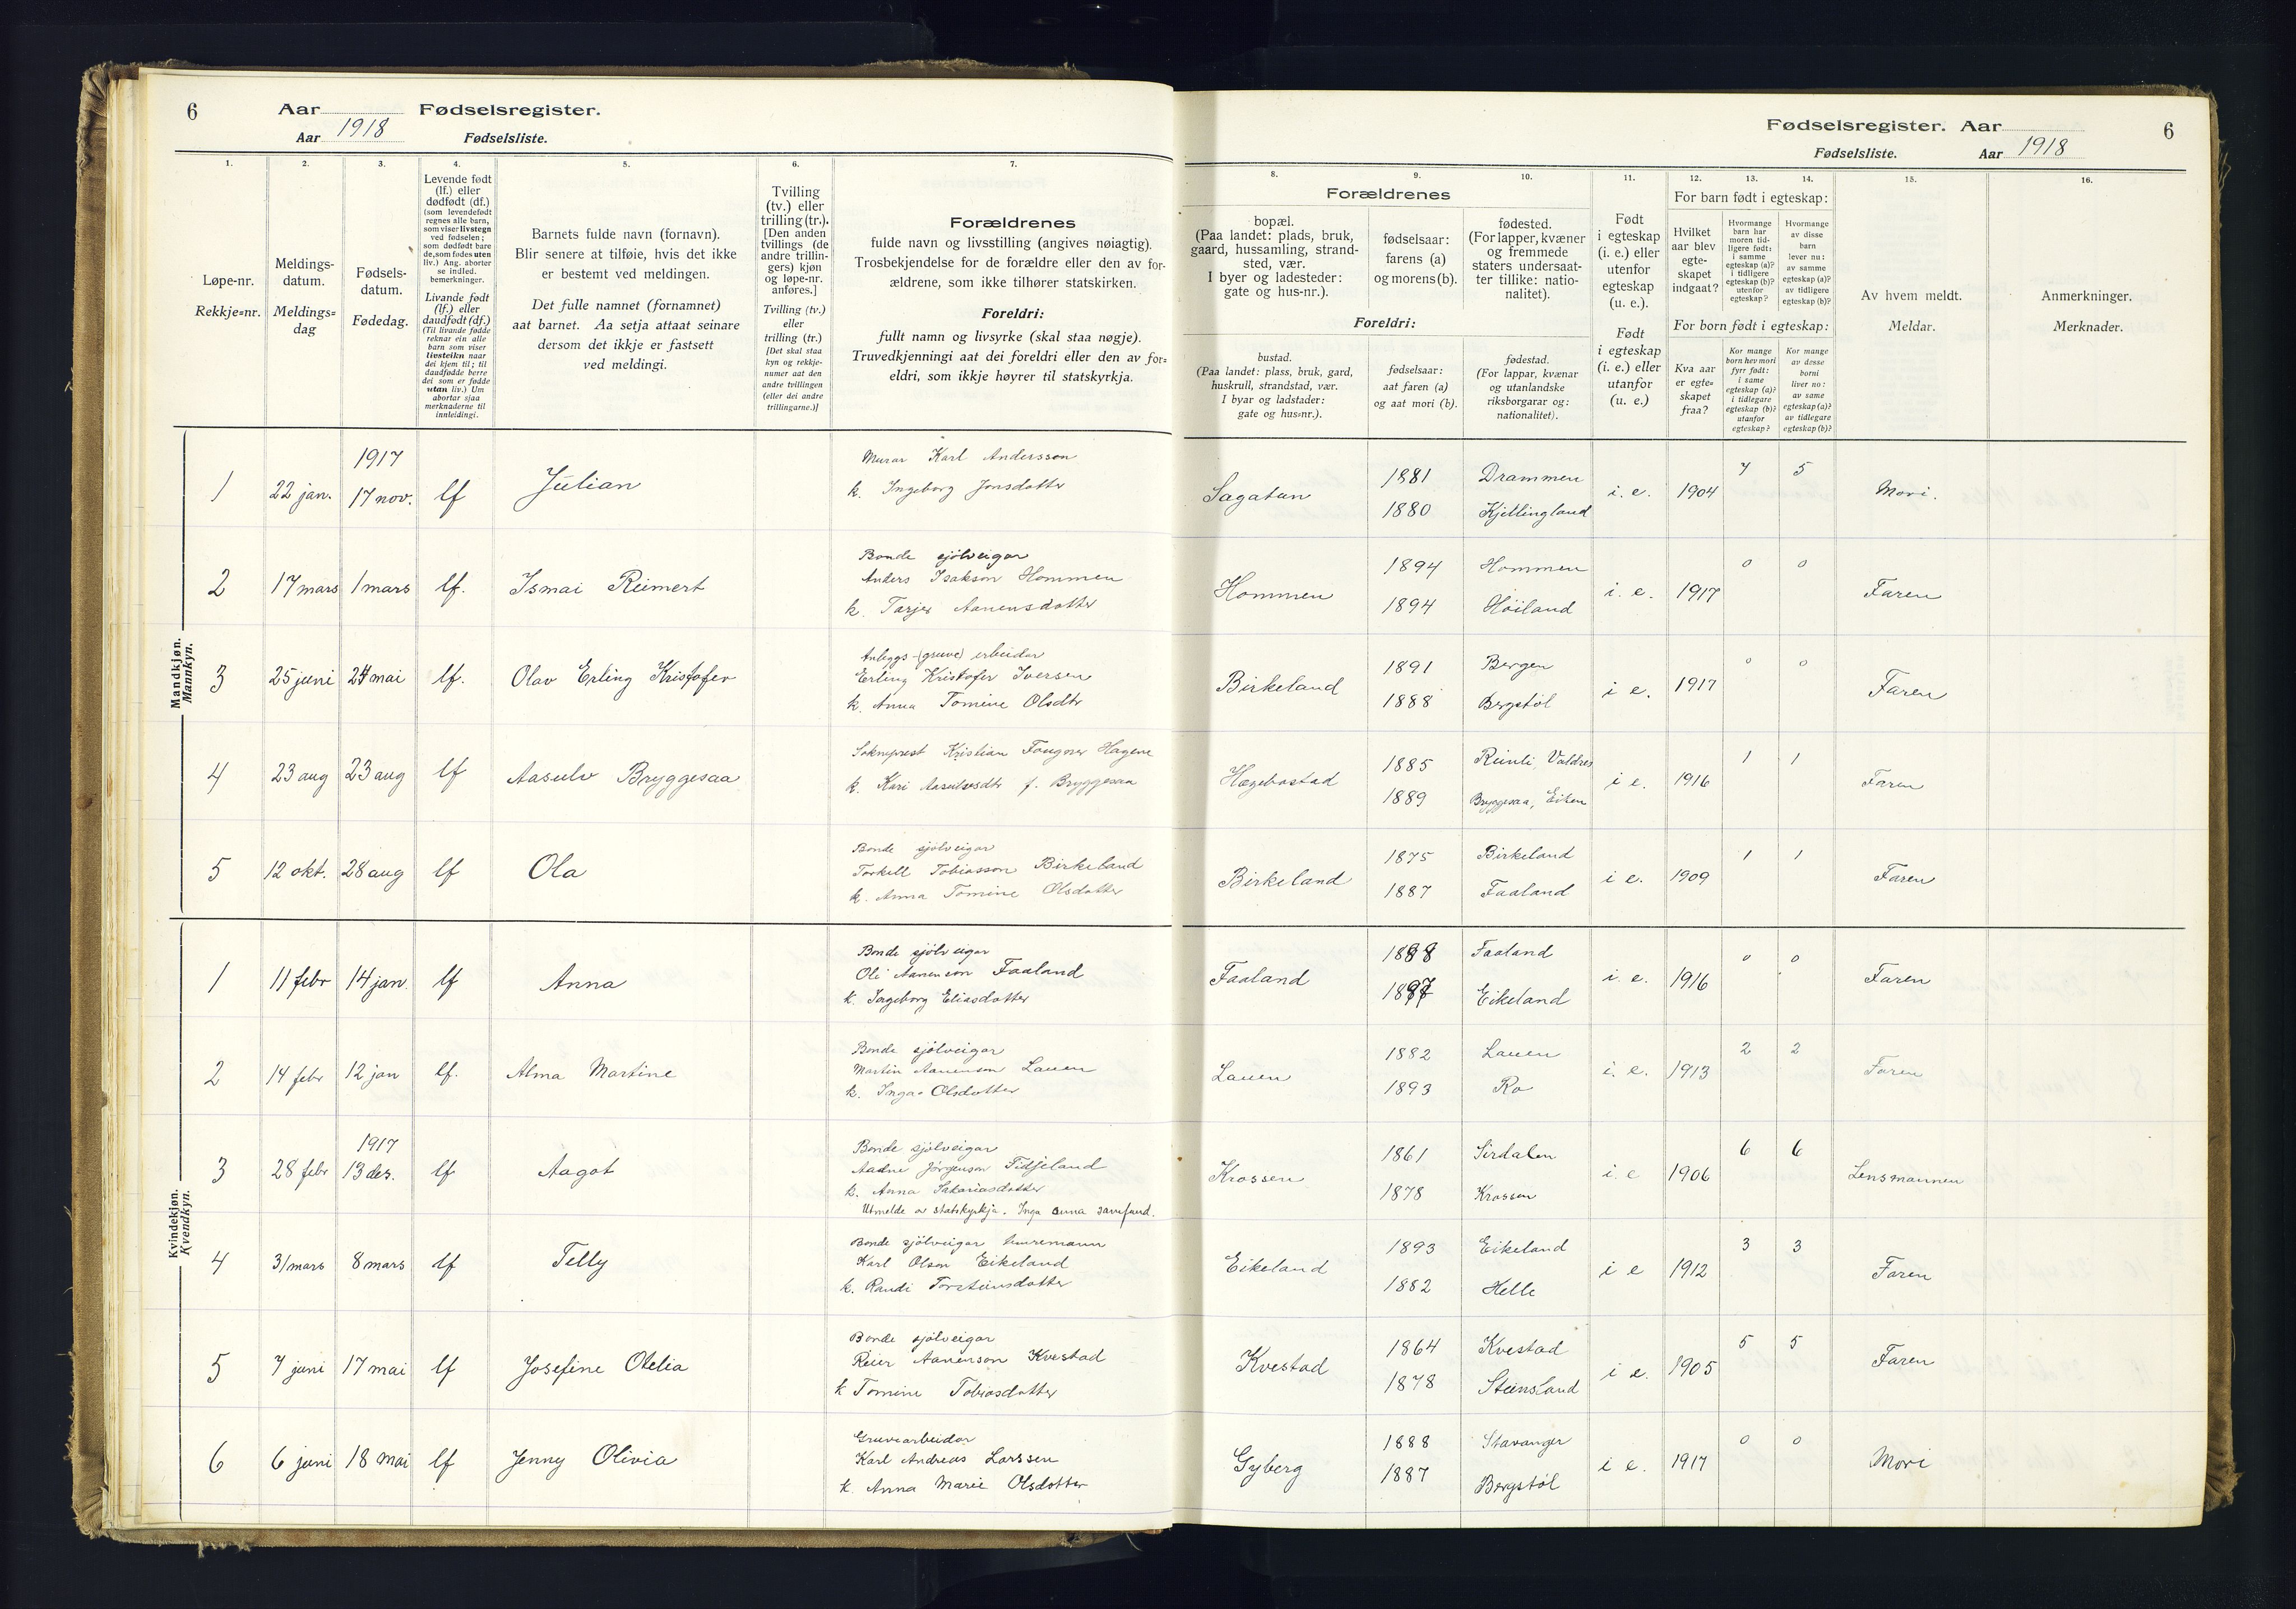 6
Aar
Fødselsregister.
Aar 1918
Fødselsliste.
Fødselsregister. Aar
6
Fødselsliste.
Aar 1918
1.
Løpe-nr.
Rekkje=nr.
2.
Meldings-
datum.
Meldings=
dag
3.
Fødsels-
datum.
Fødedag.
4.
Levende født
(lf.) eller
dødfødt (df.)
(som levendefødt
regnes alle barn,
som viser livstegn
ved fødselen;
som dødfødt bare
de, som fødes uten
liv.) Ang. aborter
se indled.
bemerkninger.
Livande født
(lf.) eller
daudfødt (df.)
(Til livande fødde
reknar ein alle
barn som viser
livsteikn naar
dei kjem til; til
daudfødde berre
dei som er fødde
utan liv.) Um
abortar sjaa
merknaderne til
innleidingi.
5.
Barnets fulde navn (fornavn).
Blir senere at tilføie, hvis det ikke
er bestemt ved meldingen.
Det fulle namnet (fornamnet)
aat barnet. Aa setja attaat seinare
dersom det ikkje er fastsett
ved meldingi.
6.
Tvilling
(tv.) eller
trilling (tr.).
[Den anden
tvillings (de
andre trillin-
gers) kjøn
og løpe-nr.
anføres.]
Tvilling (tv.)
eller
trilling (tr.)
[Det skal staa
kyn og rekkje-
numer aat den
andre tvillingen
(eller dei andre
trillingarne.)]
7.
Forældrenes
fulde navn og livsstilling (angives nøiagtig).
Trosbekjendelse for de forældre eller den av for-
ældrene, som ikke tilhører statskirken.
Foreldri:
fullt namn og livsyrke (skal staa nøgje).
Truvedkjenningi aat dei foreldri eller den av for=
eldri, som ikkje høyrer til statskyrkja.
8.
Forældrenes
bopæl.
(Paa landet: plads, bruk,
gaard, hussamling, strand-
sted, vær.
I byer og ladesteder:
gate og hus-nr.).
Foreldri:
bustad.
(Paa landet: plass, bruk, gard,
huskrull, strandstad, vær.
I byar og ladstader:
gate og hus=nr.).
9.
fødselsaar:
farens (a)
og morens (b).
fødselsaar:
aat faren (a)
og aat mori (b).
10.
fødested.
(For lapper, kvæner
og fremmede
staters undersaat-
ter tillike: natio-
nalitet).
fødestad.
(For lappar, kvænar
og utanlandske
riksborgarar og:
nationalitet).
11.
Født
i egteskap
(i. e.) eller
utenfor
egteskap
(u. e.).
Født
i egteskap
(i. e.) eller
utanfor
(u. e.)
12.
For barn født i egteskap:
Hvilket
aar blev
egte-
skapet
indgaat?
For born født i egteskap:
Kva aar
er egte=
skapet
fraa?
13.
Hvormange
barn har
moren tid-
ligere født:
i samme
egteskap (a)?
i tidligere
egteskap (b)?
utenfor
egteskap?
Kor mange
born hev mori
fyrr født:
i same
egteskap (a)?
i tidlegare
egteskap (b)?
utanfor
egteskap?
14.
Hvormange
av disse
barn
lever nu:
av samme
egteskap (a)?
av tidligere
egteskap (b)?
Kor mange
av desse
borni
liver no:
av same
egteskap (a)?
av tidlegare
egteskap (b)?
15.
Av hvem meldt.
Meldar.
16.
Anmerkninger.
Merknader.
Mandkjøn.
Mannkyn.
1
22 jan.
1917
17 nov.
lf
Julian
Murar Karl Andersson
k. Ingeborg Jonsdotter
Sagatun
1881
1880
Drammen
Kjetlingland
i. e.
1904
7
5
Mori.
2
17 mars
1 mars
lf.
Ismai Reimert
Bonde sjölveigar
Anders Isakson Hommen
k. Tarjer Aanensdotter
Hommen
1894
1894
Hommen
Höiland
i. e.
1917
0
0
Faren
3
25 juni
24 mai
lf.
Olav Erling Kristofer
Anleggs-(gruve) arbeidar
Erling Kristofer Iversen
k. Anna Tomine Olsdtr
Birkeland
1891
1888
Bergen
Bergstöl
i e.
1917
0
0
Faren
4
23 aug
23 aug
lf
Aasulv Bryggesaa
Sokneprest Kristian Fougner Hagene
k. Kari Aasulvsdtr f. Bryggesaa
Hægebostad
1885
1889
Reinli, Valdres
Bryggesaa, Eiken
i e.
1916
1
1
Faren
5
12 okt.
28 aug
lf
Ola
Bonde sjölveigar
Torkell Tobiasson Birkeland
k. Anna Tomine Olsdotter
Birkeland
1875
1887
Birkeland
Faaland
i e.
1909
1
1
Faren
Kvindekjøn.
Kvendkyn.
1
11 febr
14 jan.
lf
Anna
Bonde sjölveigar
Ole Aanenson Faaland
k. Ingeborg Eliasdotter
Faaland
1888
Faaland
Eikeland
i. e.
1916
0
0
Faren
2
14 febr
12 jan
lf.
Alma Martine
Bonde sjölveigar
Martin Aanenson Lauen
k. Inga Olsdotter
Lauen
1882
1893
Lauen
Ro
i. e.
1913
2
2
Faren
3
28 febr
1917
13 des.
lf
Aagot
Bonde sjölveigar
Aadne Jörgenson Tidjeland
k. Anna Sakariasdotter
Utmelde av statskyrkja. Inga anna samfund.
Krossen
1861
1878
Sirdalen
Krossen
i. e
1906
6
6
Lensmannen
4
31 mars
8 mars
lf
Telly
Bonde sjölveigar
Karl Olson Eikeland
k. Randi Torsteinsdotter
Eikeland
1893
1882
Eikeland
Helle
i e
1912
3
3
Faren
5
7 juni
17 mai
lf
Josefine Otelia
Bonde sjölveigar
Reier Aanenson Kvestad
k Tomine Tobiasdotter
Kvestad
1864
1878
Kvestad
Steinsland
i e.
1905
5
5
Faren
6
6 juni
18 mai
lf
Jenny Olivia
Gruvearbeidar
Karl Andreas Larssen
k. Anna Marie Olsdotter
Gyberg
1888
1887
Stavanger
Bergstöl
i e.
1917
0
0
Mori